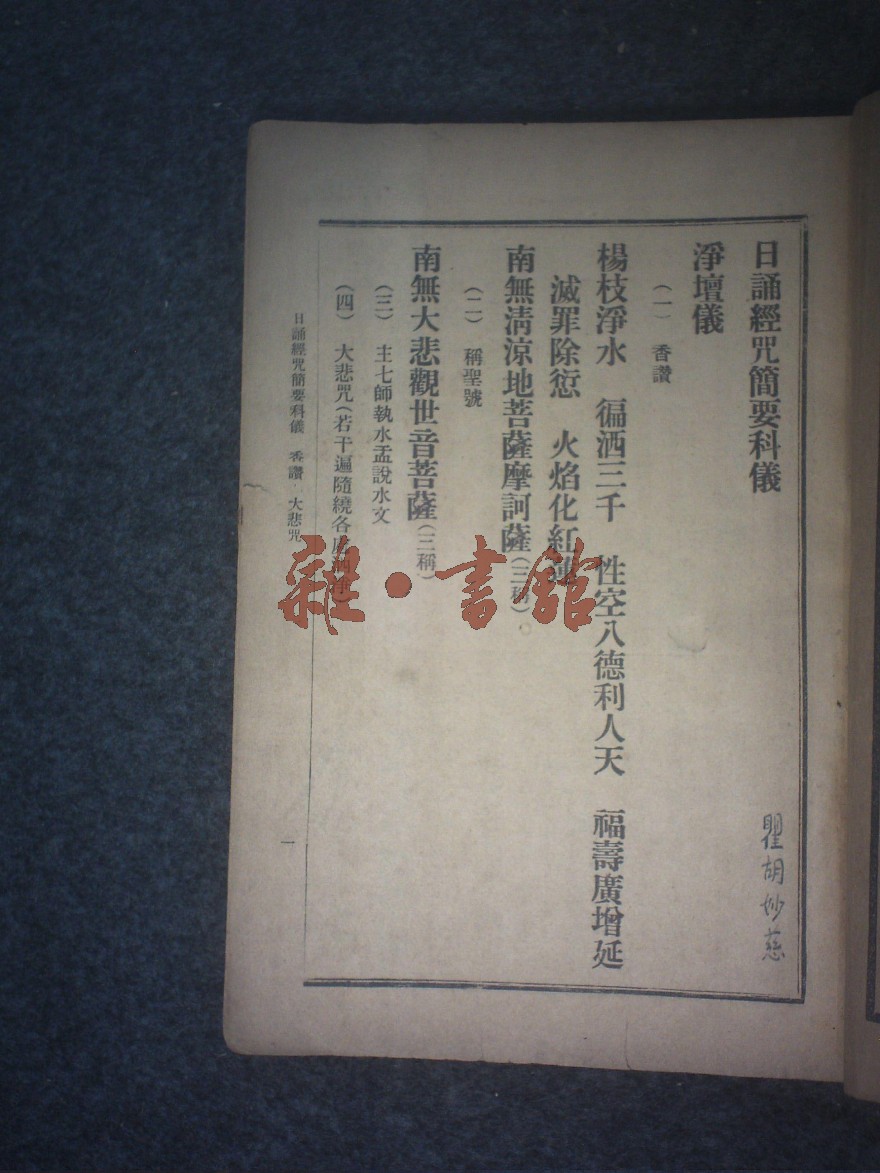 日誦經咒簡要科儀
瞿胡妙慈
淨壇儀
(一) 香讚
楊枝淨水 徧洒三千 性空八德利人天 福壽廣增延
滅罪除愆 火焰化紅蓮
南無清涼地菩薩摩訶薩(三稱)
(二) 稱聖號
南無大悲觀世音菩薩(三稱)
(三) 主七師執水盂說水文
(四) 大悲咒(若干遍隨繞各處洒淨)
日誦經咒簡要科儀 香讚·大悲咒
一
雜·書館